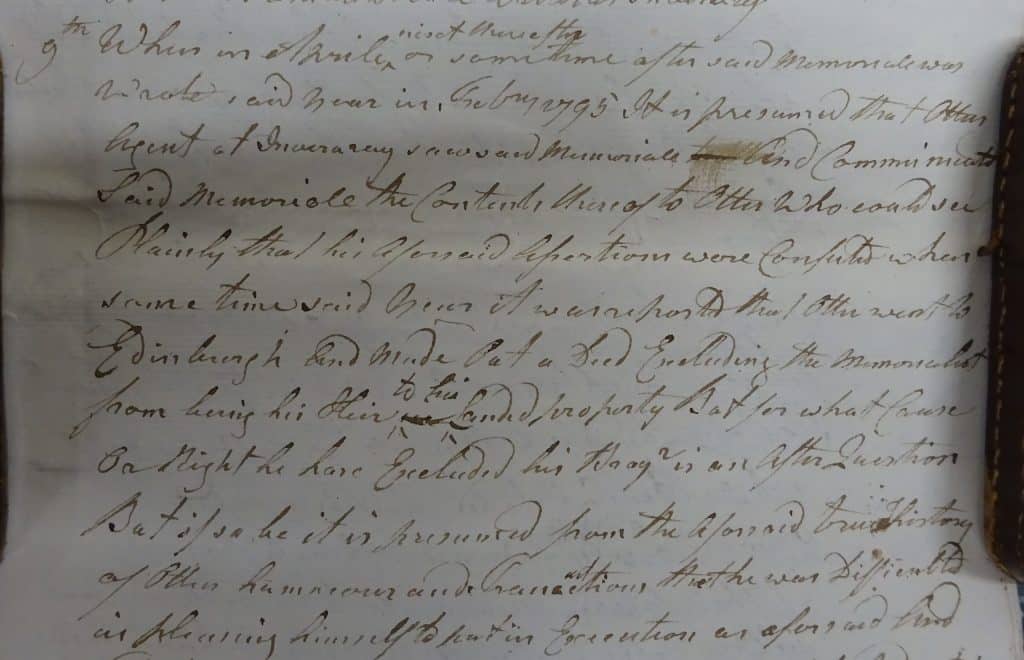 9th When in Aprile next thereafter or sometime after said Memoriale was
Wrote said year in Febry 1795 It is presumed that Otters
Agent at Inveraray saw said Memoriale And Communicate
Said Memoriale the Contents thereof to Otter Who could see
Plainly that his aforsaid Assertions were Confuted when
same time said year it was reported that Otter went to
Edinburgh And Made Out a Deed Excluding the Memorialist
from being his Heir to his Landed property But for what Cause
Or Right he have Excluded his is an After Question
But if so be it is presumed from the Aforsaid true History
of Otters humour and Transactions that he was Difficultd
in pleasing himself to put in Execution as aforsaid And